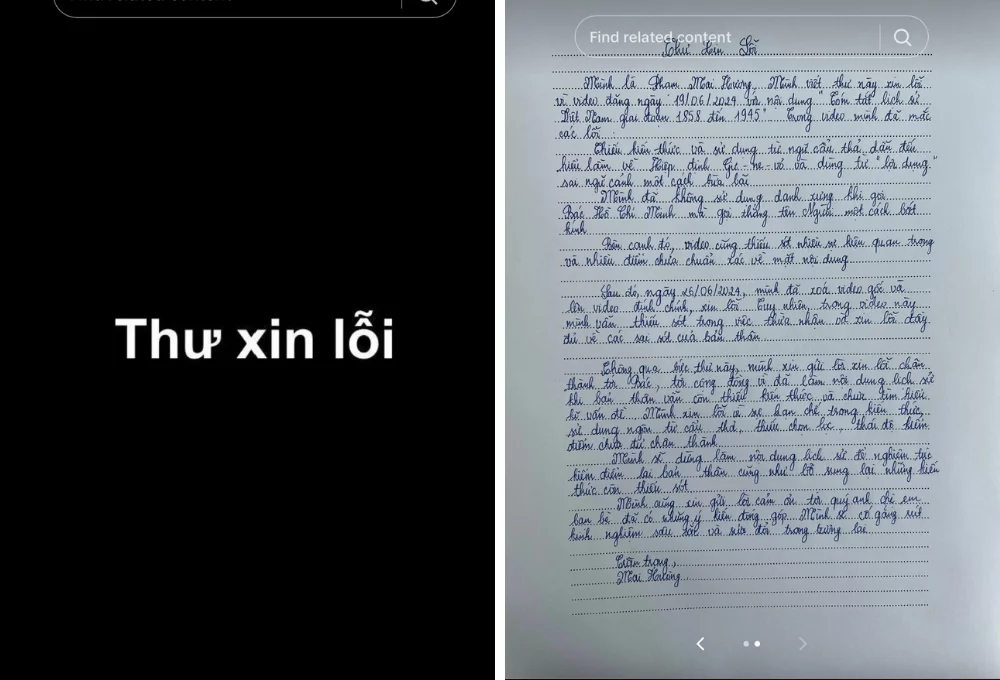 Find related content
Thư xin lỗi
Find related content
Thư Xin Lỗi
Mình là Phạm Mai Hương, Mình viết thư này xin lỗi
vì video đăng ngày 19/06/2024 với nội dung "Tóm tắt lịch sử
Việt Nam giai đoạn 1858 đến 1945". Trong video mình đã mắc
các lỗi:
Thiếu kiến thức và sử dụng từ ngữ cẩu thả dẫn đến
hiểu lầm về Hiệp định Giơ-ne-vơ và dùng từ "lợi dụng"
sai ngữ cảnh một cách bừa bãi
Mình đã không sử dụng danh xưng khi gọi
Bác Hồ Chí Minh mà gọi thẳng tên Người một cách bất
kính
Bên cạnh đó, video cũng thiếu sót nhiều sự kiện quan trọng
và nhiều điểm chưa chuẩn xác về mặt nội dung
Sau đó, ngày 26/06/2024, mình đã xoá video gốc và
lên video đính chính, xin lỗi. Tuy nhiên, trong video này
mình vẫn thiếu sót trong việc thừa nhận và xin lỗi đầy
đủ về các sai sót của bản thân
Thông qua bức thư này, mình xin gửi lời xin lỗi chân
thành tới Bác, tới cộng đồng vì đã làm nội dung lịch sử
khi bản thân vẫn còn thiếu kiến thức và chưa tìm hiểu
kĩ vấn đề. Mình xin lỗi vì sự hạn chế trong kiến thức,
sử dụng ngôn từ cẩu thả, thiếu chọn lọc, thái độ kiểm
điểm chưa đủ chân thành
Mình sẽ dừng làm nội dung lịch sử để nghiêm túc
kiểm điểm lại bản thân cũng như bổ sung lại những kiến
thức còn thiếu sót
Mình cũng xin gửi lời cảm ơn tới quý anh chị em
bạn bè đã có những ý kiến đóng góp. Mình sẽ cố gắng rút
kinh nghiệm sâu sắc và sửa đổi trong tương lai
Trân trọng,
Mai Hương